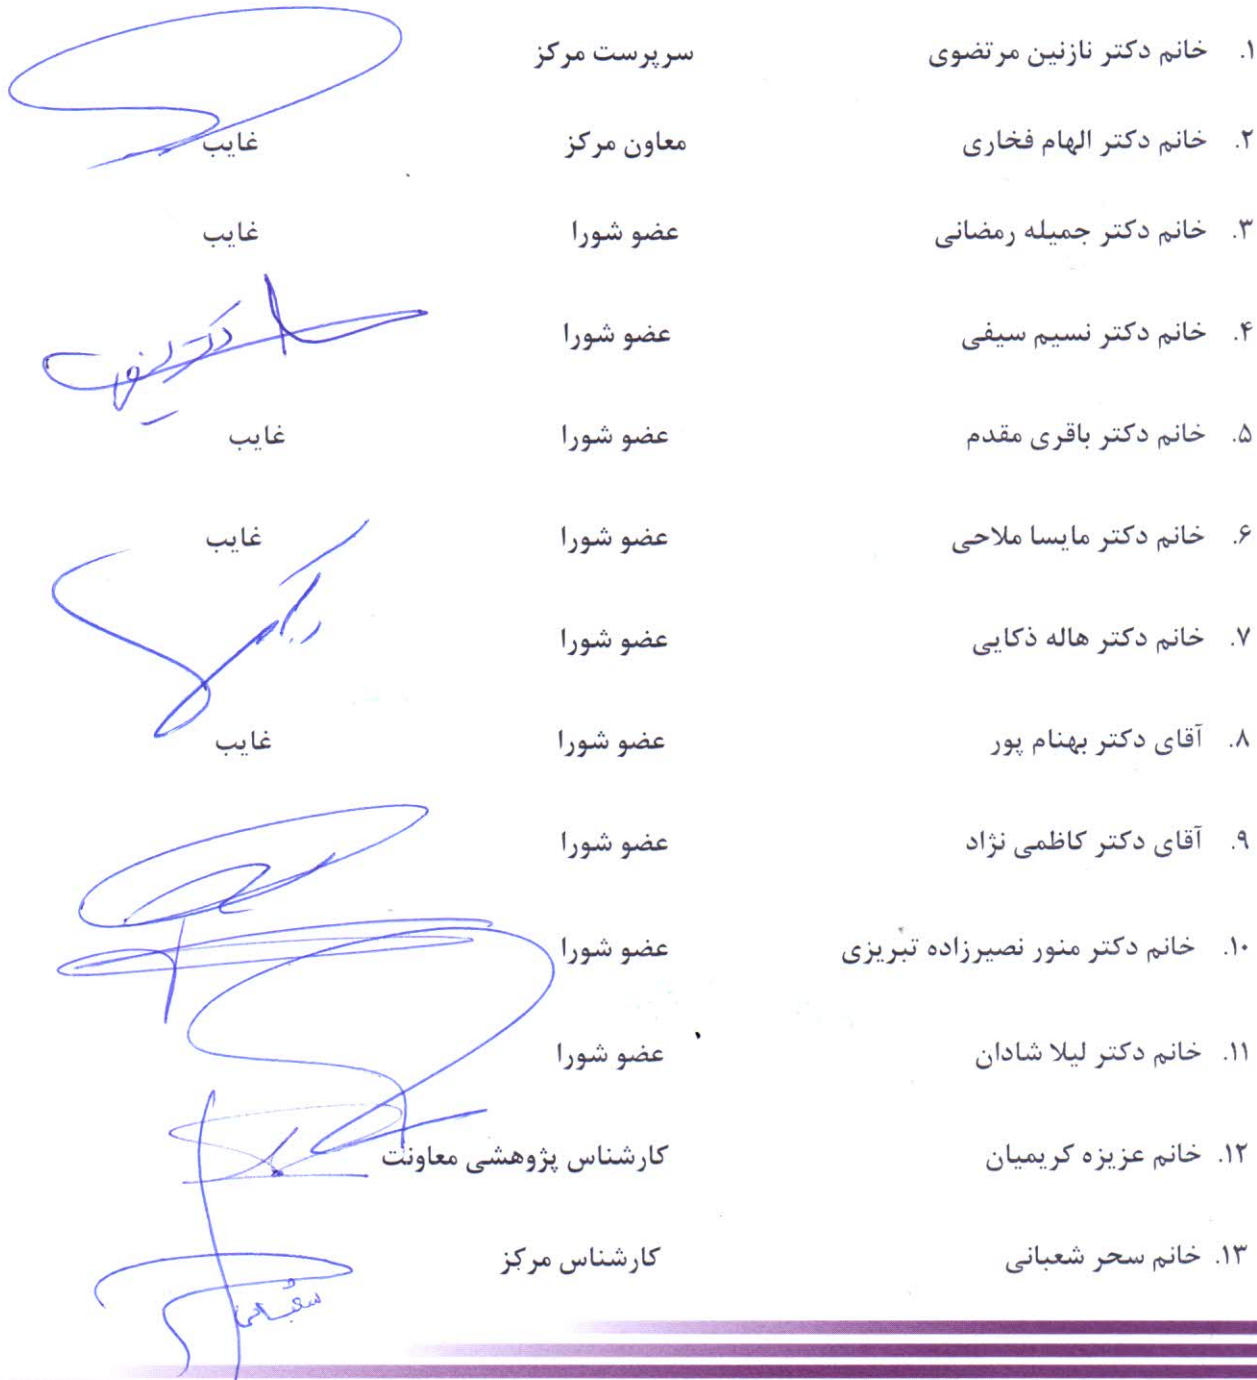 ۱. خانم دکتر نازنین مرتضوی سرپرست مرکز
۲. خانم دکتر الهام فخاری معاون مرکز غایب
۳. خانم دکتر جمیله رمضانی عضو شورا غایب
۴. خانم دکتر نسیم سیفی عضو شورا
۵. خانم دکتر باقری مقدم عضو شورا غایب
۶. خانم دکتر مایسا ملاحی عضو شورا غایب
۷. خانم دکتر هاله ذکایی عضو شورا
۸. آقای دکتر بهنام پور عضو شورا غایب
۹. آقای دکتر کاظمی نژاد عضو شورا
۱۰. خانم دکتر منور نصیرزاده تبریزی عضو شورا
۱۱. خانم دکتر لیلا شادان عضو شورا
۱۲. خانم عزیزه کریمیان کارشناس پژوهشی معاونت
۱۳. خانم سحر شعبانی کارشناس مرکز
شعبانی